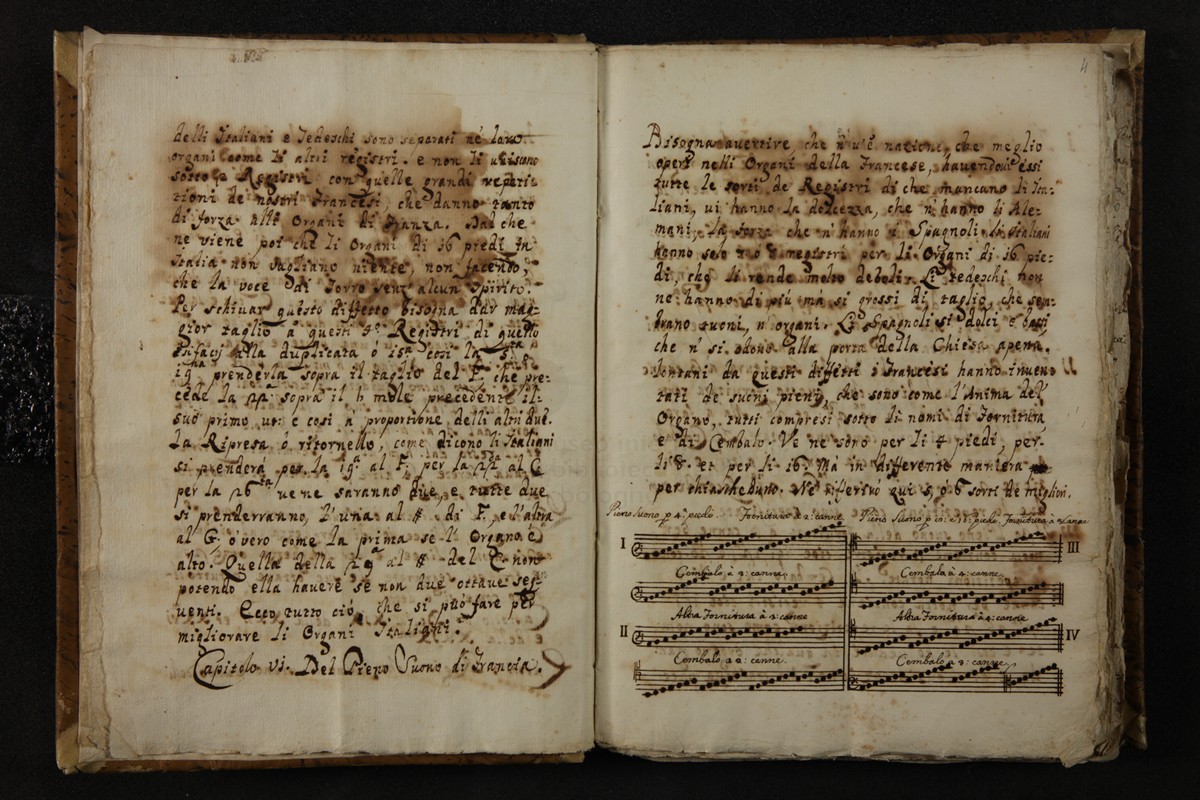 delli Italiani e Tedeschi sono separati ne' loro
organi come li altri registri. e non li uniscono
sotto a Registri con quelle grandi repeti-
tioni de nostri Francesi, che danno tanto
di forza alli Organi di Franza. Dal che
ne viene poi che li Organi di 16 piedi in
Italia non vagliano niente, non facendo,
che la voce di Torro senz' alcun spirito.
Per schivar questo diffetto bisogna dar mag-
gior taglio à questi Registri di quello
si facij alla duplicata ó 15ª cosi la
19 prenderla sopra il taglio del F. che pre-
cede la 22ª sopra il b mole precedente il
suo primo ut: e cosi à proportione delli altri due.
La Ripresa ó ritornello, come dicono li Italiani
si prenderà per la 19ª al F. per la 22ª al C
per la 26ta ve ne saranno due, e tutte due
si prenderranno, l'una al # di F., e l'altra
al G. óvero come la prima se l'Organo è
alto. Quella della 29ª al # del C non
potendo ella havere se non due ottave seg-
uenti. Ecco tutto ciò, che si può fare per
migliorare li Organi Italiani.
Capitolo VI. Del Pieno Suono di Francia.
4
Bisogna avertire che n'v'è natione, che meglio
operi nelli Organi della Francese, havendovi essi
tutte le sorti de Registri di che mancano li Ita-
liani, vi hanno la dolcezza, che n'hanno li Ale-
mani, la forza che n'hanno i Spagnoli. Li Italiani
hanno solo 2 ó 3 registri per li Organi di 16 pie-
di, che li rende molto deboli. Li tedeschi non
ne hanno di più mà si grossi di taglio, che sem-
brano tuoni, n' organi. Li Spagnoli si dolci e bassi
che n' si odono alla porta della Chiesa apena.
Lontani da questi diffetti i Francesi hanno inven-
tati de suoni pieni, che sono come l'Anima dell'
Organo, tutti compresi sotto li nomi di Fornitura
e di Cembalo. Ve ne sono per li 4 piedi, per
li 8. et per li 16. Mà in differente maniera
per chiascheduno. Ne riferirò qui 5, ó 6 sorti de migliori.
Pieno Suono p 4: piedi Fornitura à 2: canne Pieno Suono p piedi. Fornitura à canne
I III
Cembalo à 2: canne. Cembalo à 4: canne.
Altra Fornitura à 2: canne Altra Fornitura à 4: canne
II IV
Cembalo à 2: canne. Cembalo à 3: canne